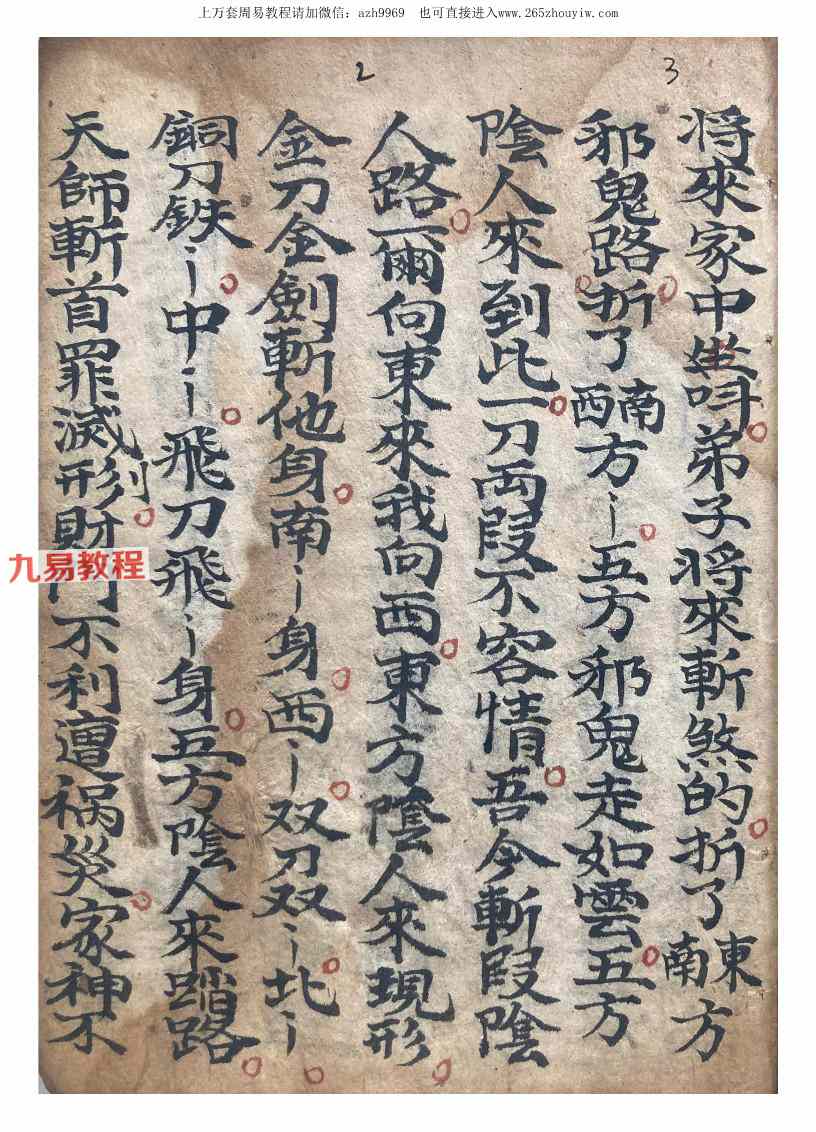 上万套周易教程请加微信：azh9969　也可直接进入www.265zhouyiw.com
3
2
将來家中坐呌弟子将來斬煞的折了東南方
邪鬼路折了南西方〻五方邪鬼走如雲五方
陰人來到此一刀両叚不容情吾今斬叚陰
人路一爾向東來我向西東方陰人來現形
金刀金劍斬他身南〻身西〻双刀双〻北〻
銅刀鉄〻中〻飛刀飛〻身五方陰人來踏路
天師斬首罪滅形財門不利遭祸災家神不
九易教程